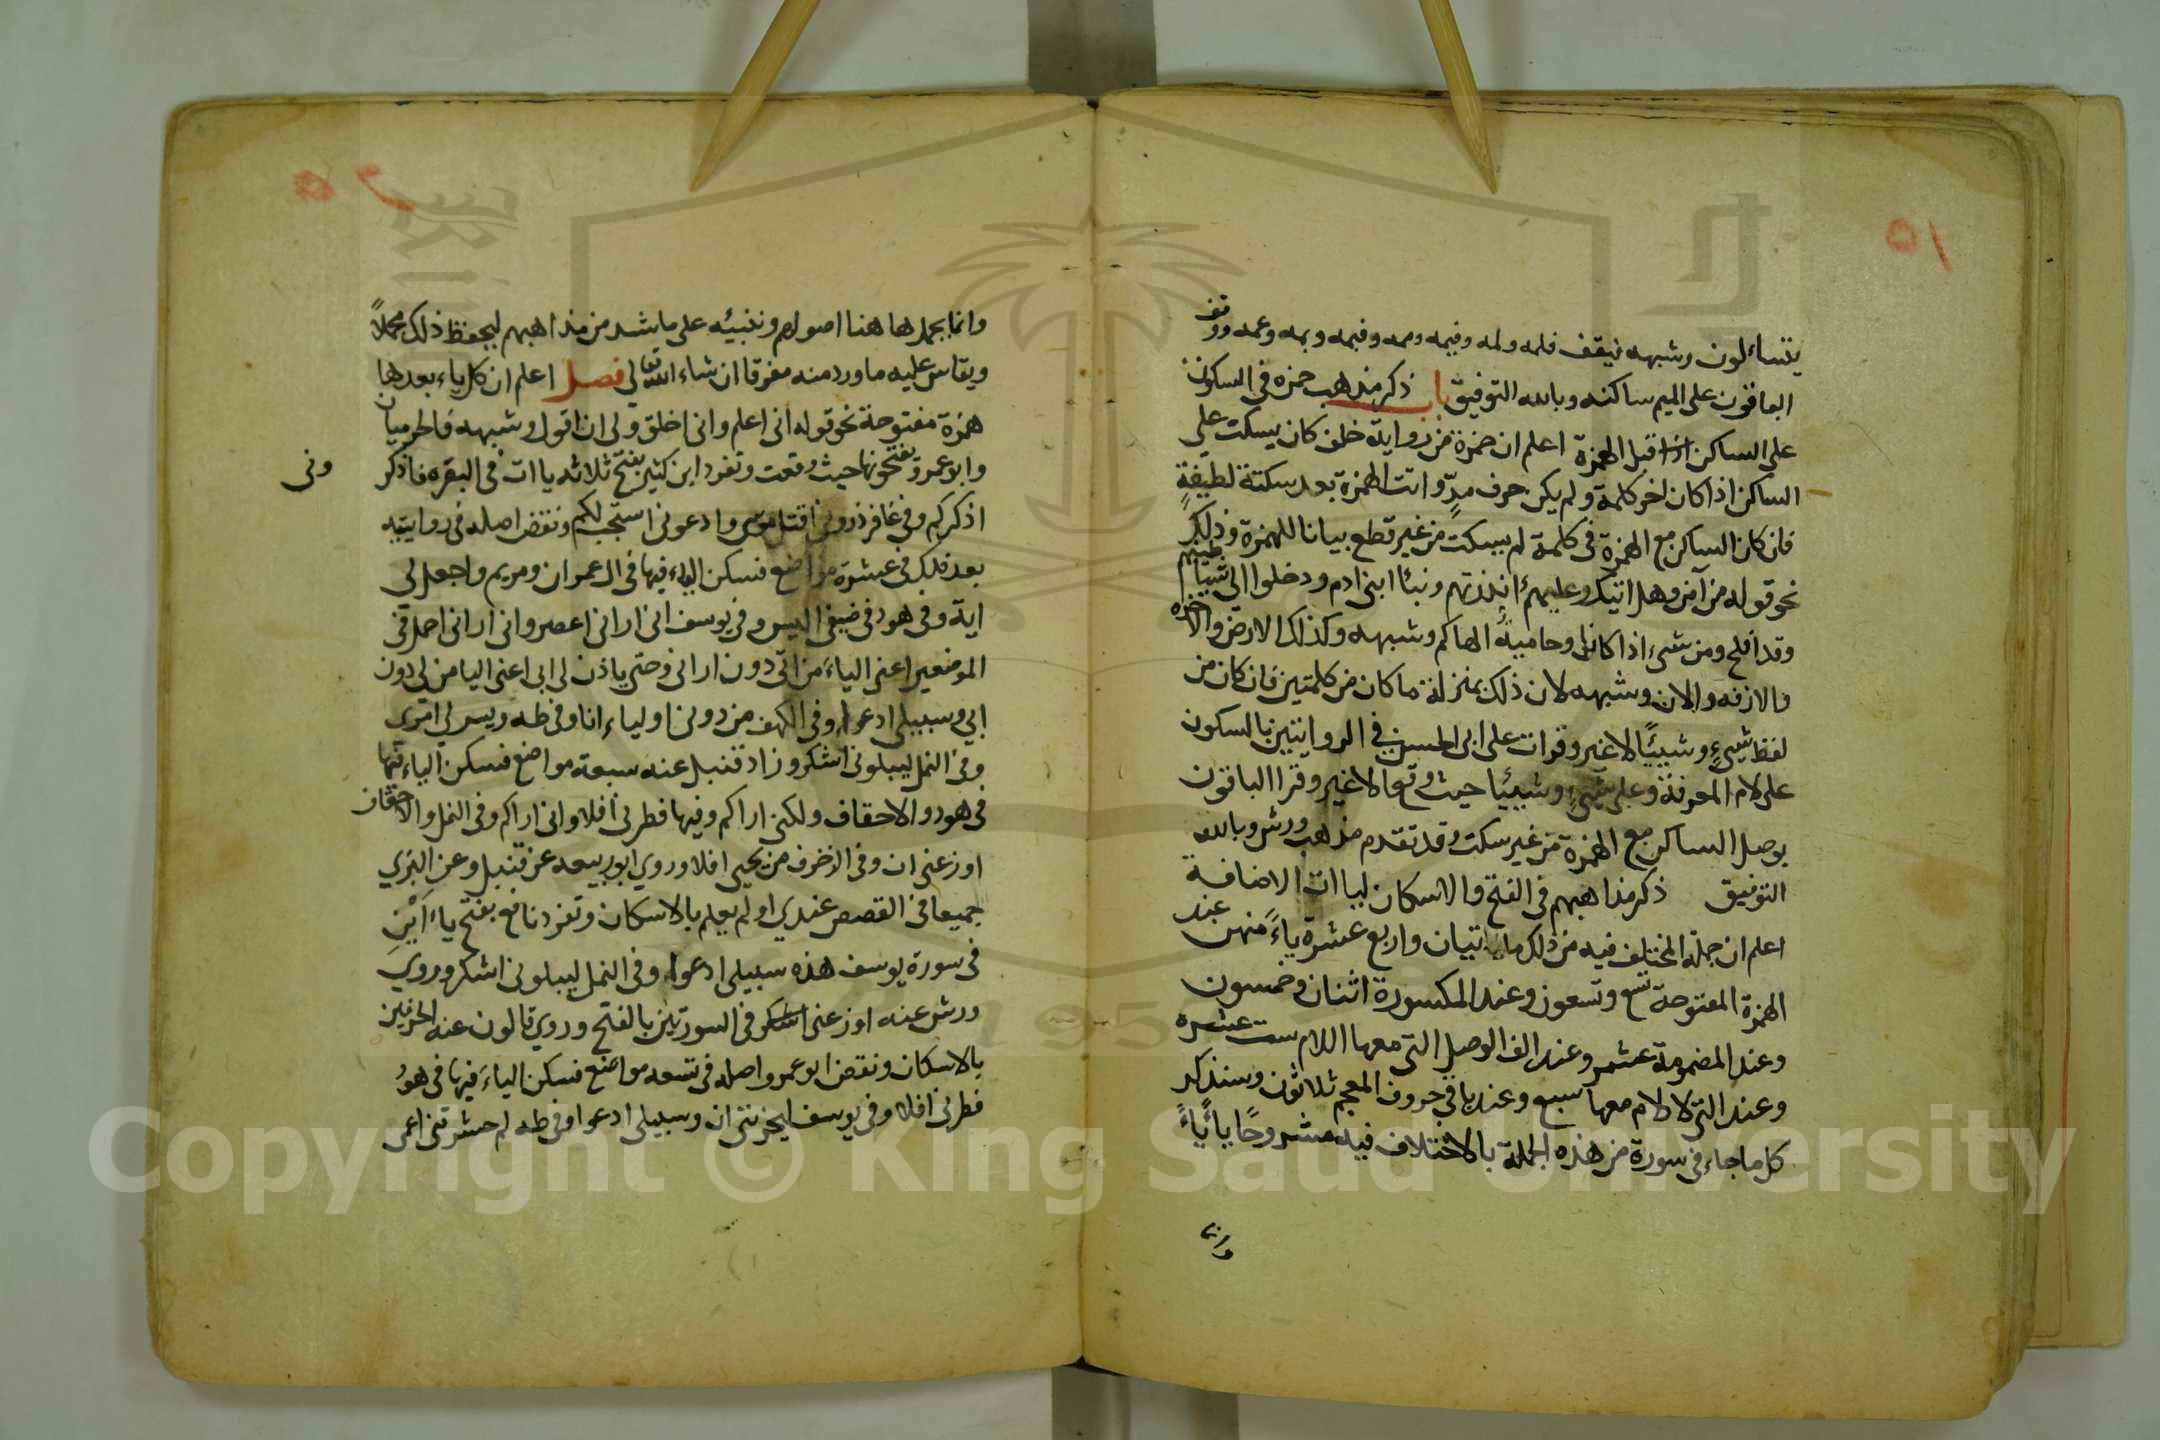 ٥١
يتساءلون وشبهه فيقف فلمه ولمه وفيمه وممه وفيمه وبمه وعمه ووقف
الباقون على الميم ساكنه وبالله التوفيق باب ذكر مذهب حمزه في السكون
على الساكن اذا قبل الهمزة اعلم ان حمزة من رواية خلف كان يسكت على
الساكن اذا كان اخر كلمة ولم يكن حرف مدّ واتت الهمزة بعد سكتة لطيفةٍ
من غير قطع بيانا للهمزة وذلك
فان كان الساكن مع الهمزة في كلمة لم يسكت
نحو قوله من آمن وهل اتيك وعليهم ءانذرتهم ونبئا ابنى ادم ودخلوا الى شياطينهم
وقد افلح ومن شىء اذا كانا وحاميةٌ الهاكم وشبهه وكذلك الارض والاخره
والازفه والان وشبهه لان ذلك بمنزلة ما كان من كلمتين فان كان من
لفظ شيءٍ وشيئًا لا غير وقرات على ابى الحسن في الروايتين بالسكون
على لام المعرفة وعلى شيءٍ وشيئا حيث وقعا لا غير وقرا الباقون
بوصل الساكن مع الهمزة من غير سكت وقد تقدم مذهب ورش وبالله
التوفيق ذكر مذاهبهم في الفتح والاسكان لياات الاضافة
اعلم ان جملة المختلف فيه من ذلك مايتيان واربع عشرة ياءً منهن عند
الهمزة المفتوحة تسع وتسعون وعند المكسورة اثنتان وخمسون
وعند المضمومة عشر وعند الف الوصل التى معها اللام ست عشره
وعند التى لا لام معها سبع وعند باقي حروف المعجم ثلاثون وسنذكر
كل ما جاء في سورة من هذه الجملة بالاختلاف فيه مشروحًا ياءً ياءً
٥٢
وانما نجمل هاهنا اصولهم وننبيه على ما شد من مذاهبهم ليحفظ ذلك مجملاً
ويقاس عليه ما ورد منه مفرقا ان شاء الله تعالى فصل اعلم ان كل ياء بعدها
همزة مفتوحة نحو قوله انى اعلم وانى اخلق ولى ان اقول وشبهه فالحرميان
وابو عمرو يفتحونها حيث وقعت وتفرد ابن كثير بفتح ثلاثه ياات في البقره فاذكر
ونى
اذكركم وفي غافر ذروني اقتل موسى وادعوني استجب لكم ونقض اصله في روايتيه
بعد ذلك في عشرة مواضع فسكن الياء فيها في ال عمران ومريم واجعل لى
اية وفي هود في ضيفي اليس وفي يوسف انى ارانى اعصر وانى ارانى احمل في
الموضعين اعنى الياء من انى دون ارانى وحتى ياذن لى ابى اعنى اليا من لى دون
ابي وسبيلى ادعوا وفى الكهف من دونى اولياء انا وفي طه ويسر لي امرى
وفي النمل ليبلونى اشكر وزاد قنبل عنه سبعة مواضع فسكن الياء فيها
في هود والاحقاف ولكنى اراكم وفيها فطرنى افلا وانى اراكم وفى النمل والاحقاف
اوزعنى ان وفى الزخرف من تحتى افلا وروي ابو ربيعه عن قنبل وعن البزي
جميعا فى القصص عندي اولم يعلم بالاسكان وتفرد نافع بفتح ياء اَيْنِ
في سورة يوسف هذه سبيلى ادعوا وفى النمل ليبلونى اشكر وروي
ورش عنه اوزعنى اشكر في السورتين بالفتح وروي قالون عنه الحرفين
بالاسكان ونقض ابو عمرو اصله في تسعه مواضع فسكن الياءَ فيها في هود
فطرنى افلا وفى يوسف ليحزننى ان وسبيلى ادعوا وفى طه لم حشرتنى اعمى
Copyright © King Saud University